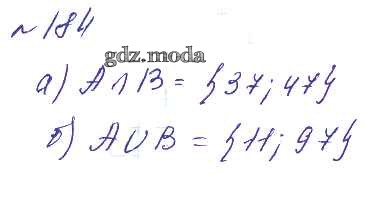 №184
gdz.moda
а) A∩B = {37; 47}
б) A∪B = {11; 97}